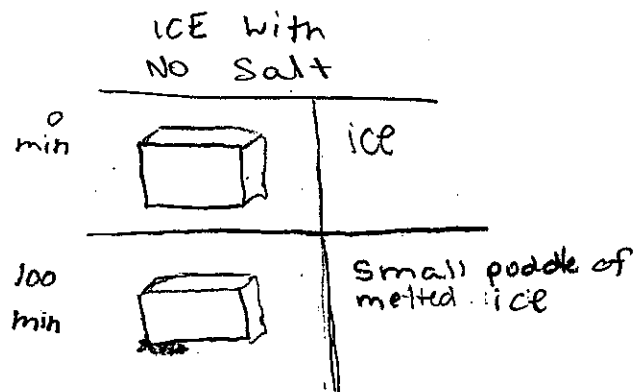 ICE with
NO Salt
0
min
ice
100
min
Small poddle of
melted ice